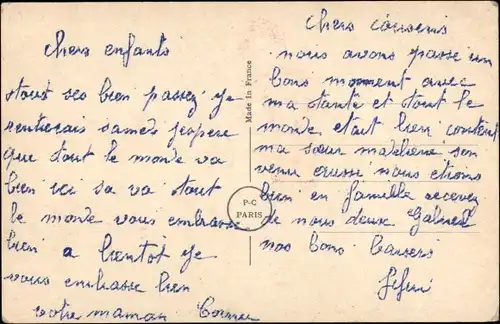 chers enfants
tout ses bien passez je
rentrerais samedi jespere
que tout le monde va
bien ici sa va tout
le monde vous embrasse
bien a bientot je
vous embrasse bien
votre maman
Made in France
P-C
PARIS
chers cousins
nous avons passe un
bons moment avec
ma tante et tout le
monde etait bien content
ma sœur madeleine son
venu aussi nous etions
bien en famille recevez
de nous deux Gabriel
nos bons baisers